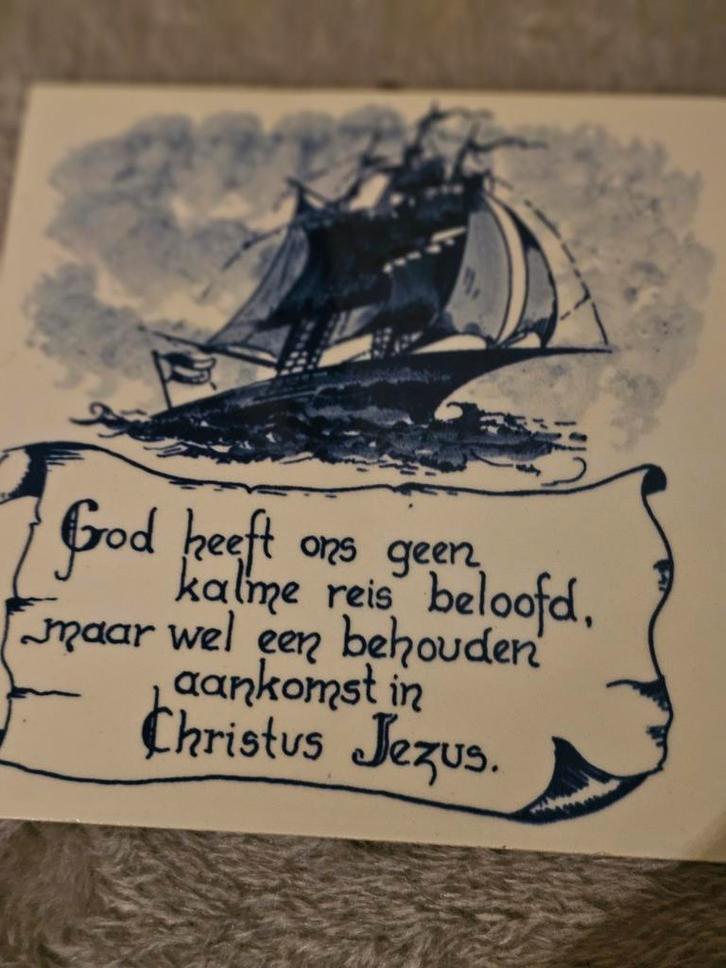 God heeft ons geen
kalme reis beloofd,
maar wel een behouden
aankomst in
Christus Jezus.